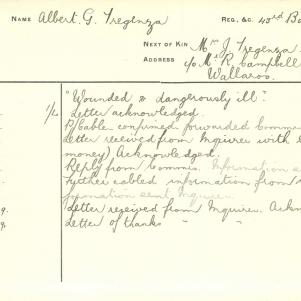 NAME Albert. G. Tregenza REG., &C. 43rd Ba
NEXT OF KIN Mrs J. Tregenza
ADDRESS c/o Mr R. Campbell
Wallaroo.
"Wounded & dangerously ill."
1/4 Letter acknowledged.
P/Cable. confirmed forwarded Commi
Letter received from Inquirer with
money) Acknowledged.
Reply from Commis. Information
Further cabled information from
formation sent Inquirer
9. Letter received from Inquirer. Ackn
9. Letter of thanks " "